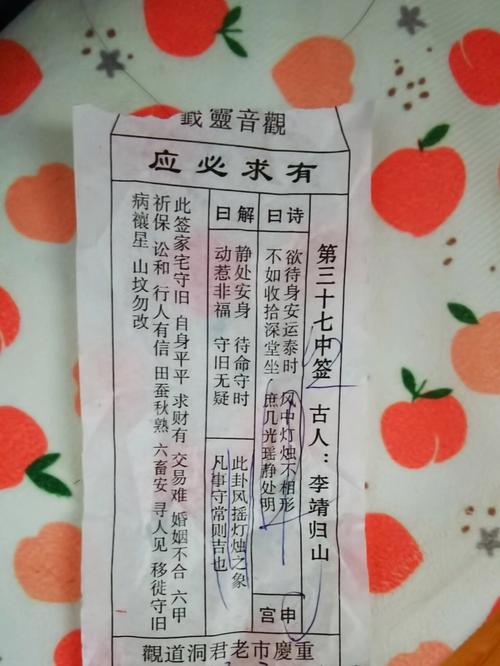 觀音靈籤
有求必应
第三十七中签 古人：李靖归山
诗曰
欲待身安运泰时 风中灯烛不相形
不如收拾深堂坐 庶几光瑶静处明
申宫
解曰
静处安身 待命守时
动惹非福 守旧无疑
此卦风摇灯烛之象
凡事守常则吉也
此签家宅守旧 自身平平 求财有 交易难 婚姻不合 六甲
祈保 讼和 行人有信 田蚕秋熟 六畜安 寻人见 移徙守旧
病禳星 山坟勿改
重慶市老君洞道觀